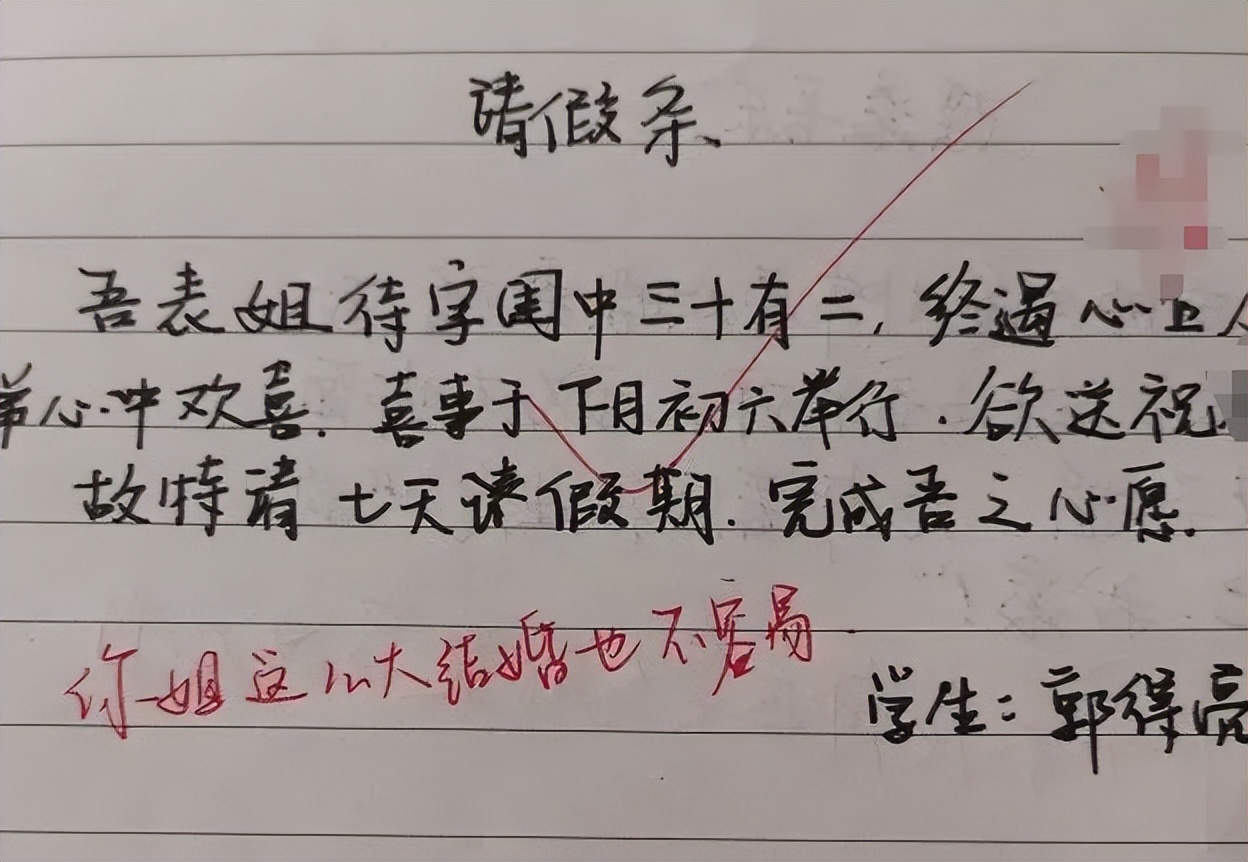 请假条
吾表姐待字闺中三十有二,终遇心上人
弟心中欢喜.喜事于下月初六举行.欲送祝
故特请七天请假期.完成吾之心愿.
你姐这么大结婚也不容易
学生:郭得亮